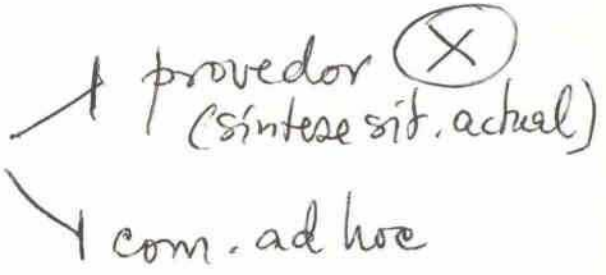 provedor X
(síntese sit. actual)
com. ad hoc